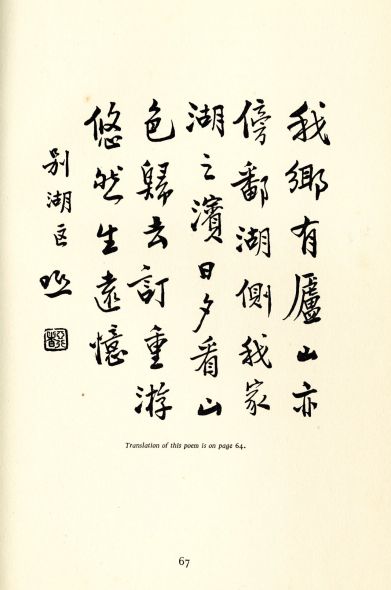 我鄉有廬山亦
傍鄱湖側我家
湖之濱日夕看山
色歸去訂重游
悠然生遠憶
别湖区 啞
Translation of this poem is on page 64.
67